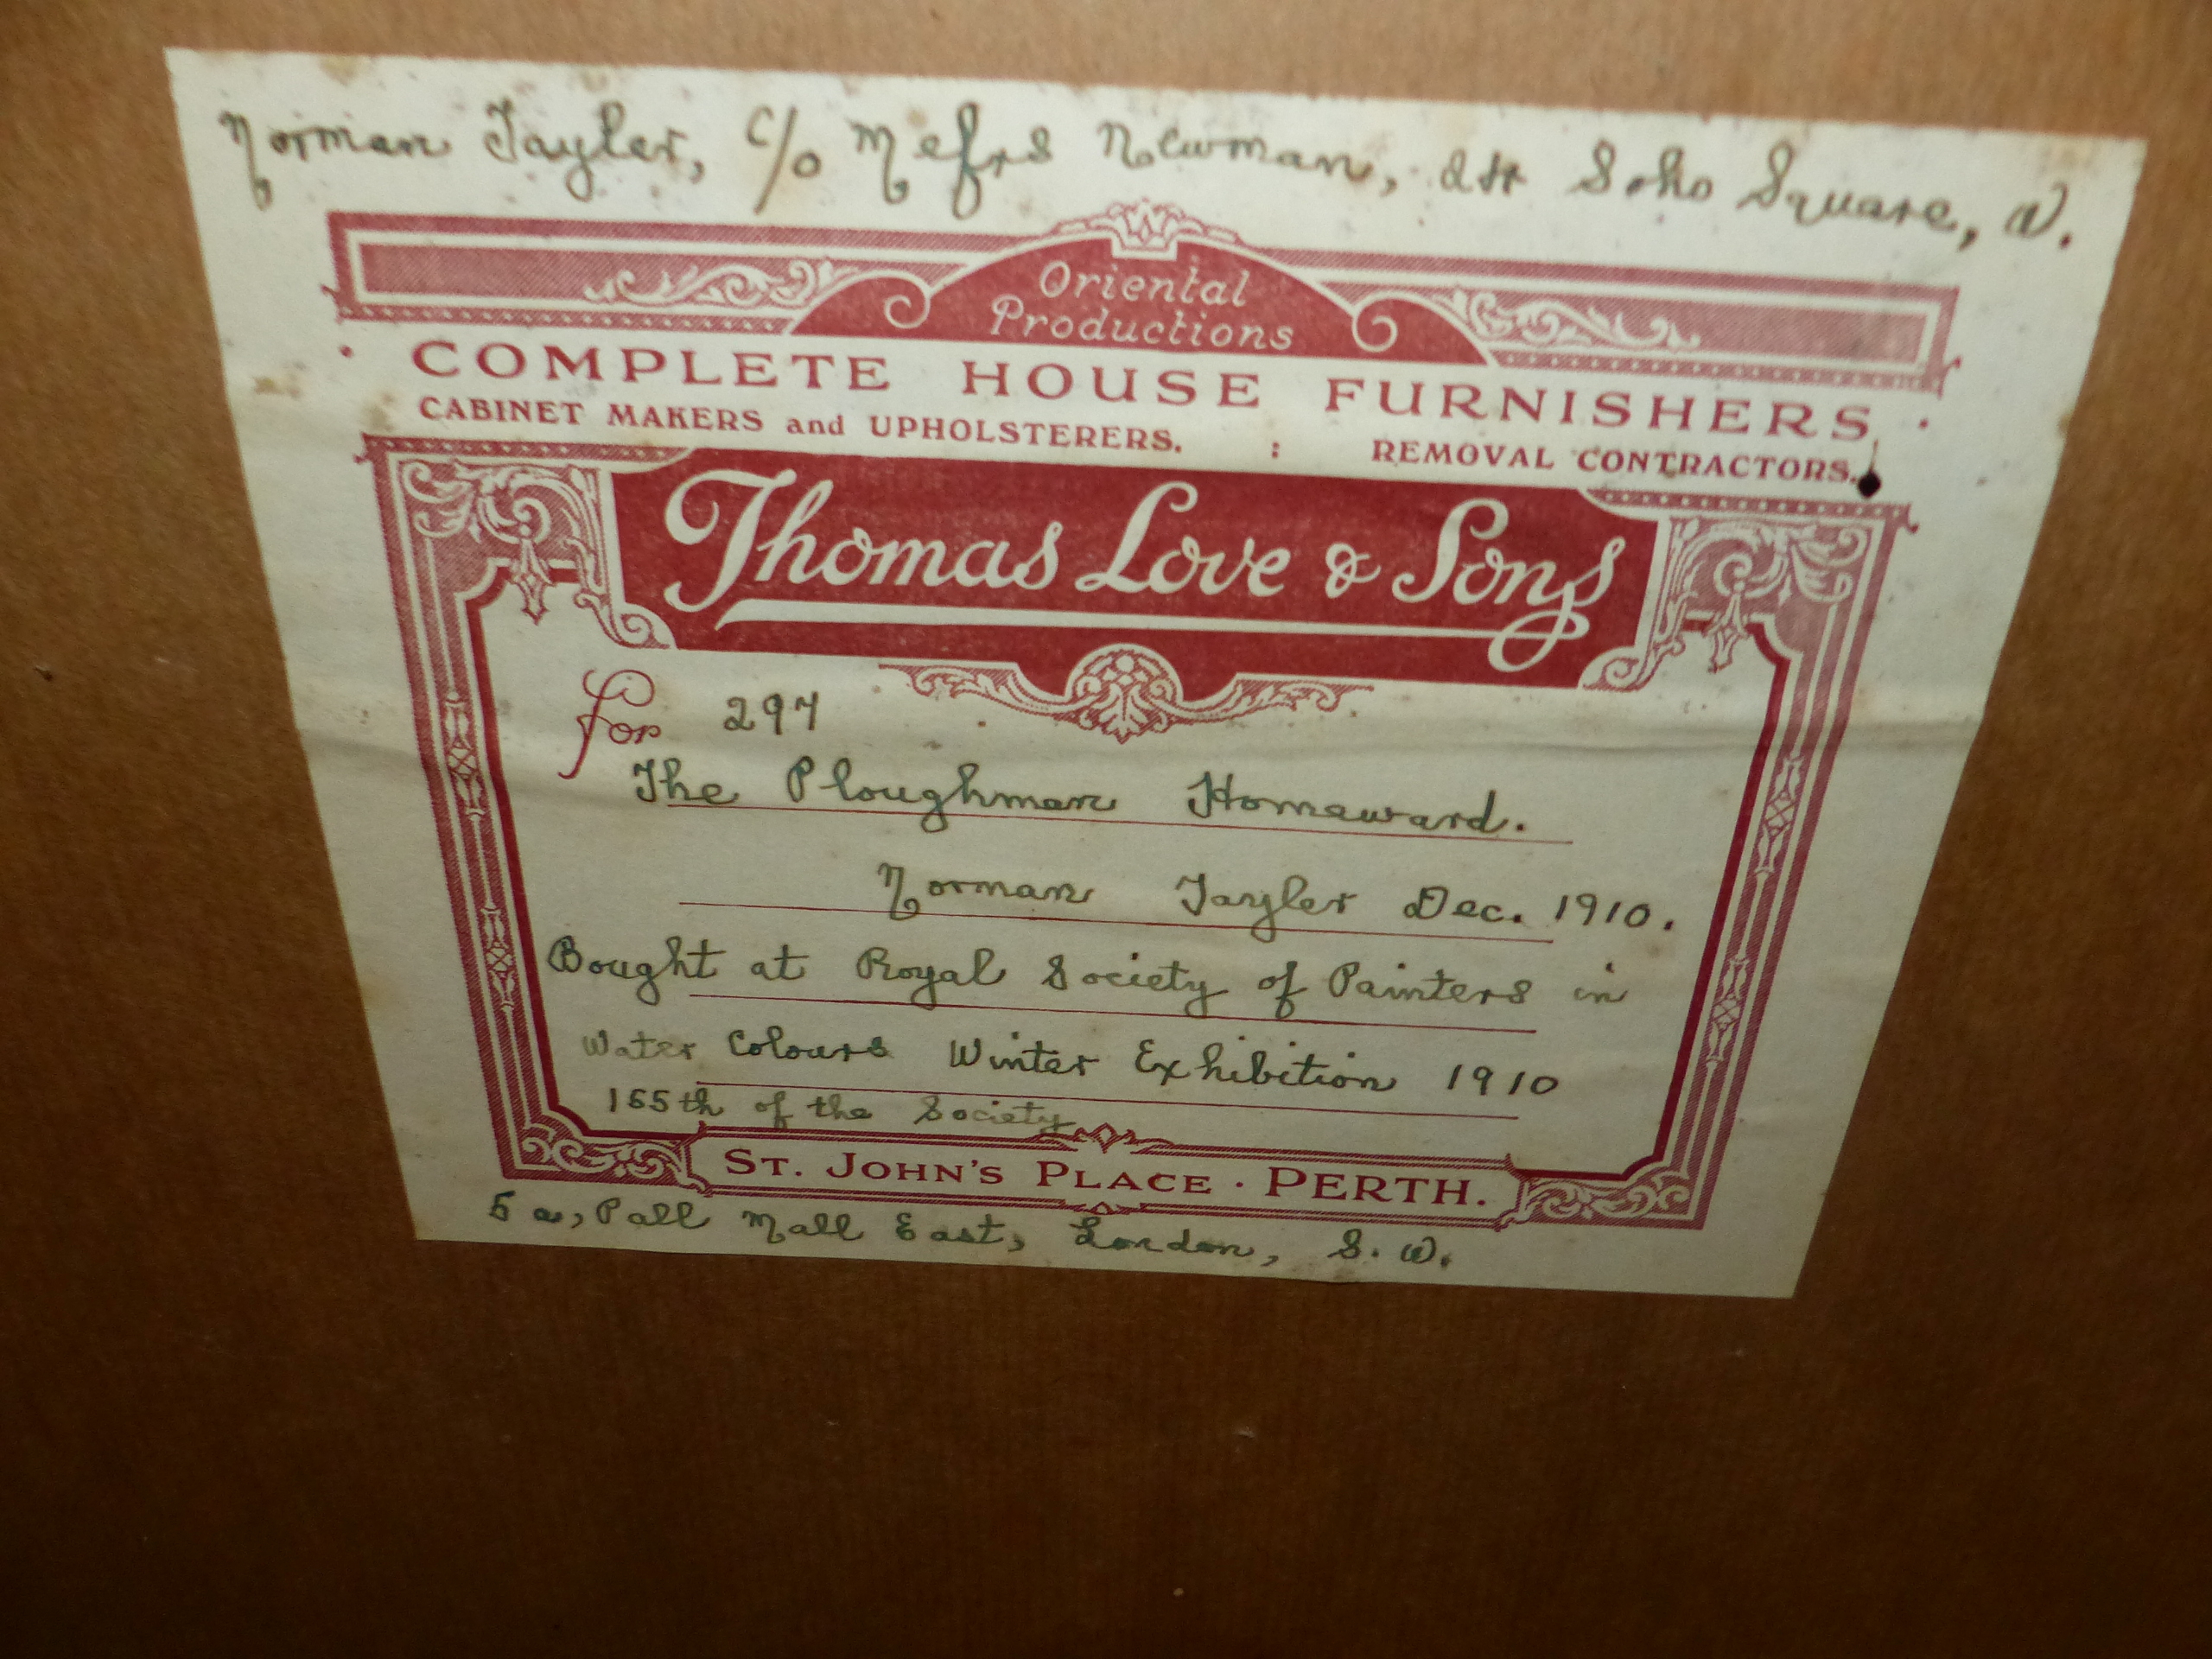 Norman Tayler, c/o Mefsrs Newman, 24 Soho Square, W.
Oriental
Productions
· COMPLETE HOUSE FURNISHERS ·
CABINET MAKERS and UPHOLSTERERS. : REMOVAL CONTRACTORS.
Thomas Love & Sons
for 297
The Ploughman Homeward.
Norman Tayler Dec. 1910.
Bought at Royal Society of Painters in
Water Colours Winter Exhibition 1910
155th of the Society
ST. JOHN'S PLACE · PERTH.
5a, Pall Mall East, London, S.W.